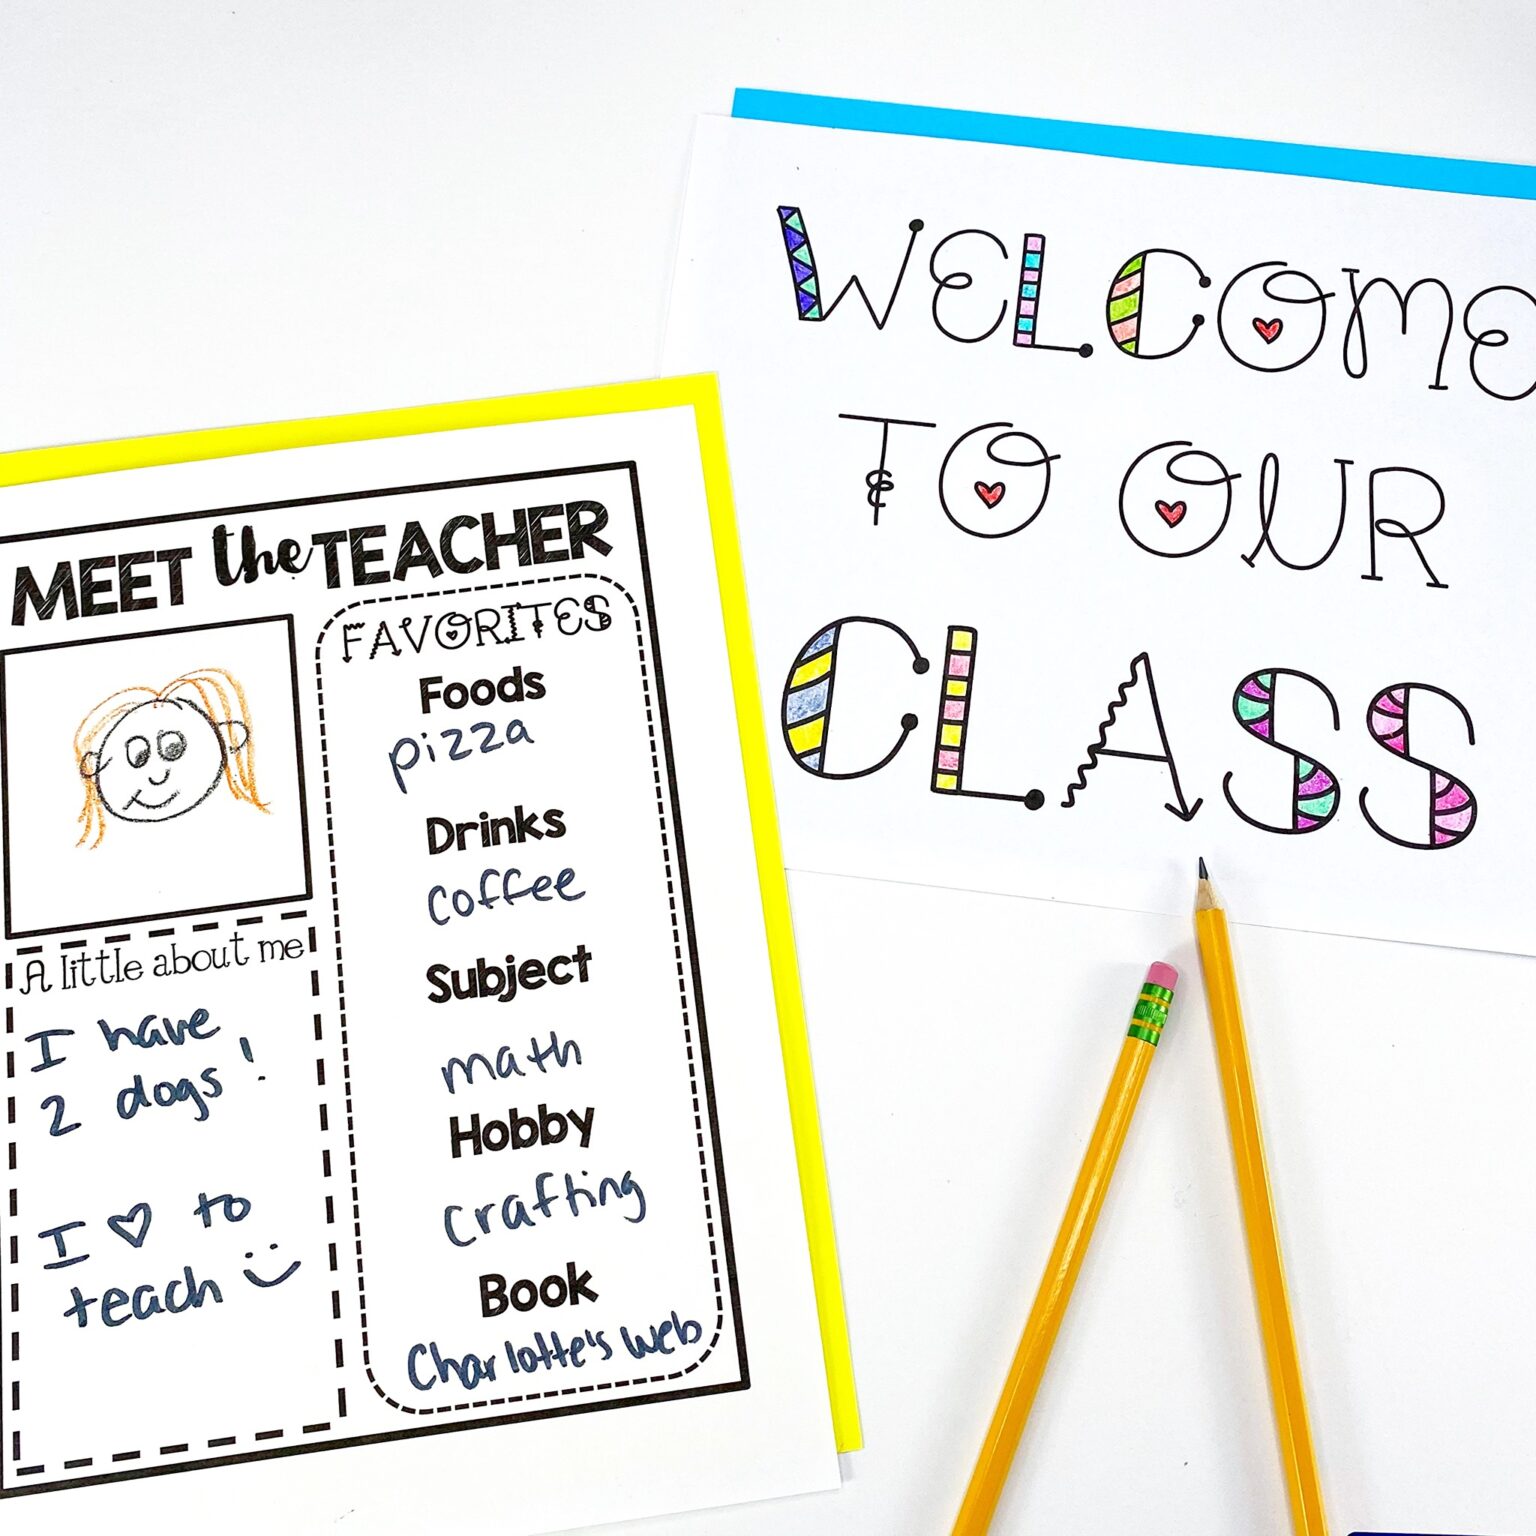 WELCOME
TO OUR
CLASS
MEET the TEACHER
FAVORITES
Foods
pizza
Drinks
coffee
Subject
math
Hobby
crafting
Book
Charlotte's web
A little about me
I have
2 dogs!
I ♡ to
teach